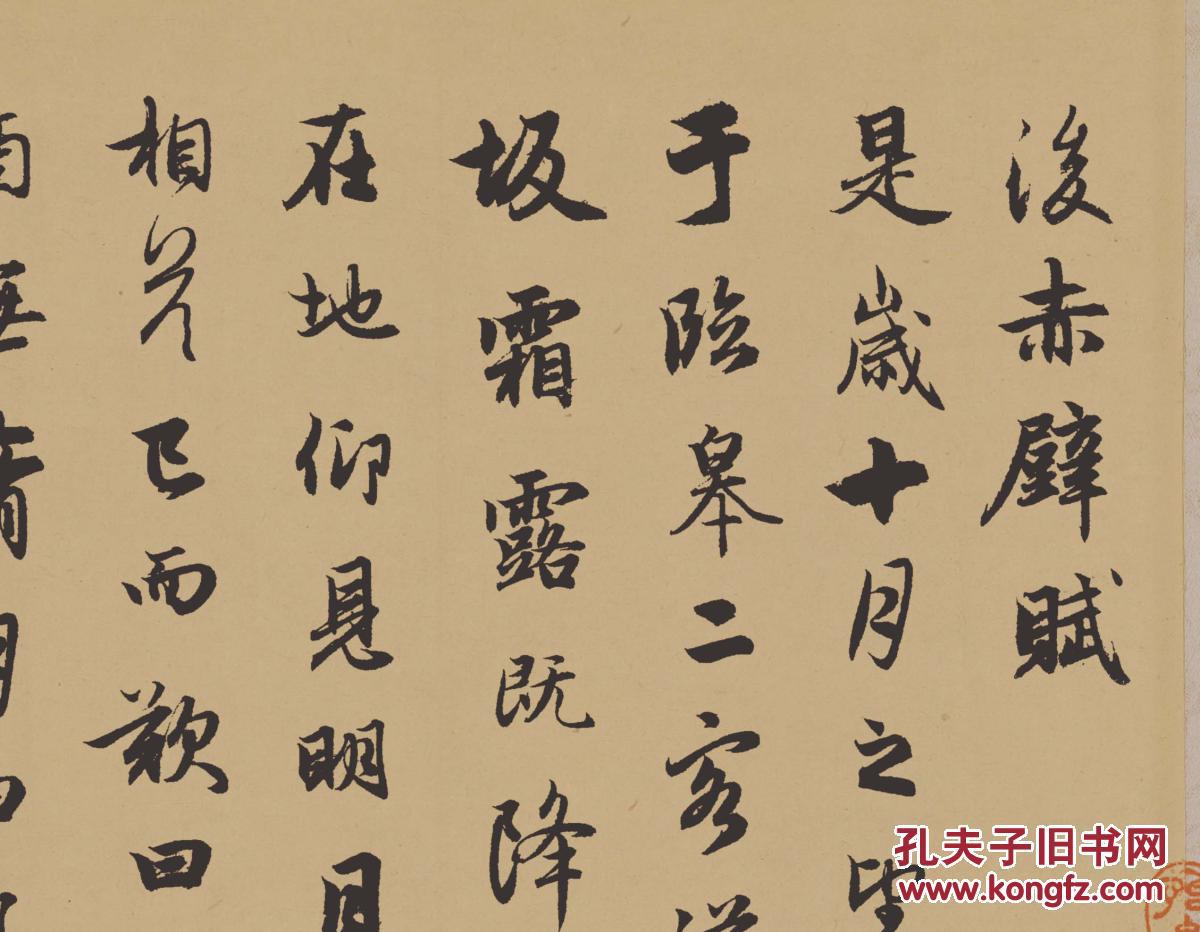 後赤壁賦
是歲十月之望
于臨皋二客從
坂霜露既降
在地仰見明月
相答已而歎曰
孔夫子旧书网
www.kongfz.com